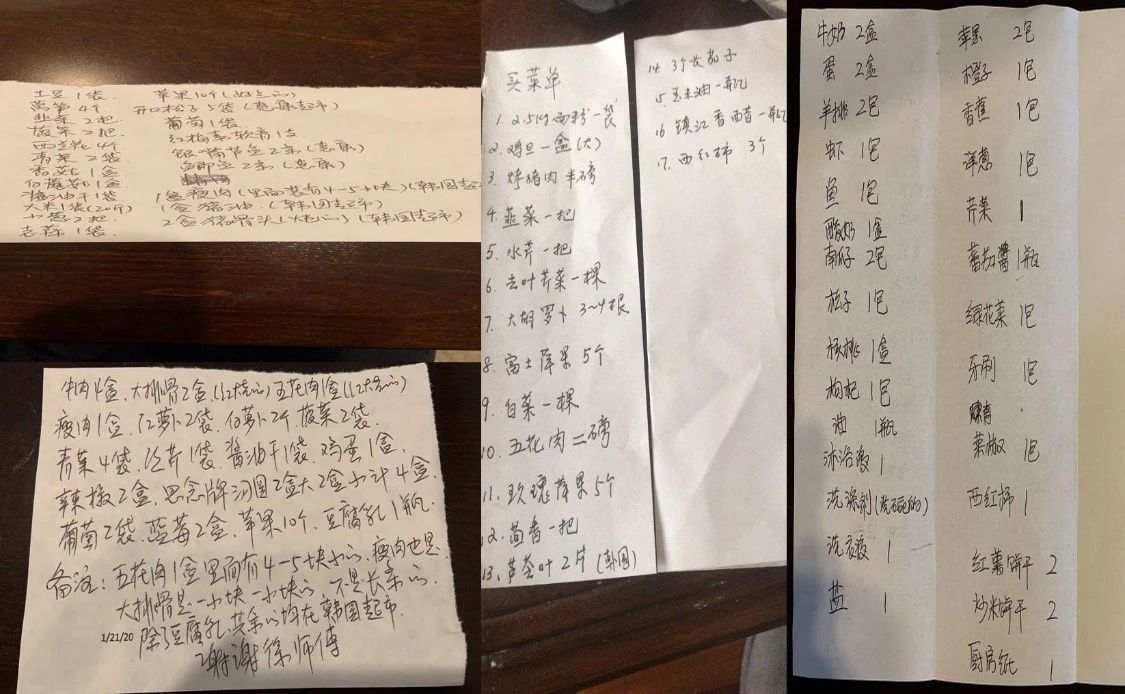 土豆 1袋.
莴笋 4个
韭菜 2把.
菠菜 2把.
西兰花 4个
青菜 2袋
白蘑菇 1盒
酱油干 1袋
大米1袋(20斤)
小葱 2把
去蒜 1袋.
苹果10个(好点的)
开口松子 5袋(惠康超市)
葡萄1袋
红梅素软膏1支
银 牙签 2条(惠康)
2条(惠康)
1盒瘦肉(里面装有4-5小块)(韩国超市)
1盒猪油.(韩国超市)
2盒猪骨头(大点的)(韩国超市)
牛肉4盒. 大排骨2盒.(12块的)五花肉1盒(12块的)
瘦肉1盒. 红萝卜2袋. 白萝卜2个. 菠菜2袋.
青菜4袋. 泣芹1袋. 酱油干1袋. 鸡蛋1盒.
辣椒2盒. 思念牌汤圆2盒大2盒小计4盒.
葡萄2袋. 蓝莓2盒. 苹果10个. 豆腐乳1瓶.
备注: 五花肉1盒里面有4-5块小的. 瘦肉也是.
大排骨是一小块一小块的 不是长条的
1/21/20
除了豆腐乳. 其余的均在韩国超市.
谢谢徐师傅
买菜单
1. 2.5kg面粉一袋
2. 鸡旦一盒(大)
3. 烤猪肉半磅
4. 韮菜一把
5. 水芹一把
6. 去叶芹菜一棵
7. 大胡罗卜 3~4根
8. 富士苹果 5个
9. 白菜一棵
10. 五花肉二磅
11. 玫瑰苹果5个
12. 茴香一把
13. 芦荟叶2片(韩国)
14. 3个长茄子
15. 玉米油一瓶
16. 镇江香醋一瓶
17. 西红柿 3个
牛奶 2盒
蛋 2盒
羊排 2包
虾 1包
鱼 1包
酸奶 1盒
南瓜子 2包
松子 1包
核桃 1盒
枸杞 1包
油 1瓶
沐浴液 1
洗涤剂
洗衣液 1
盐 1
苹果 2包
橙子 1包
香蕉 1包
洋葱 1包
芹菜 1
蕃茄醬 1瓶
绿花菜 1包
牙刷 1包
菜椒 1包
西红柿 1
红薯饼干 2
炒米饼干 2
厨房纸 1